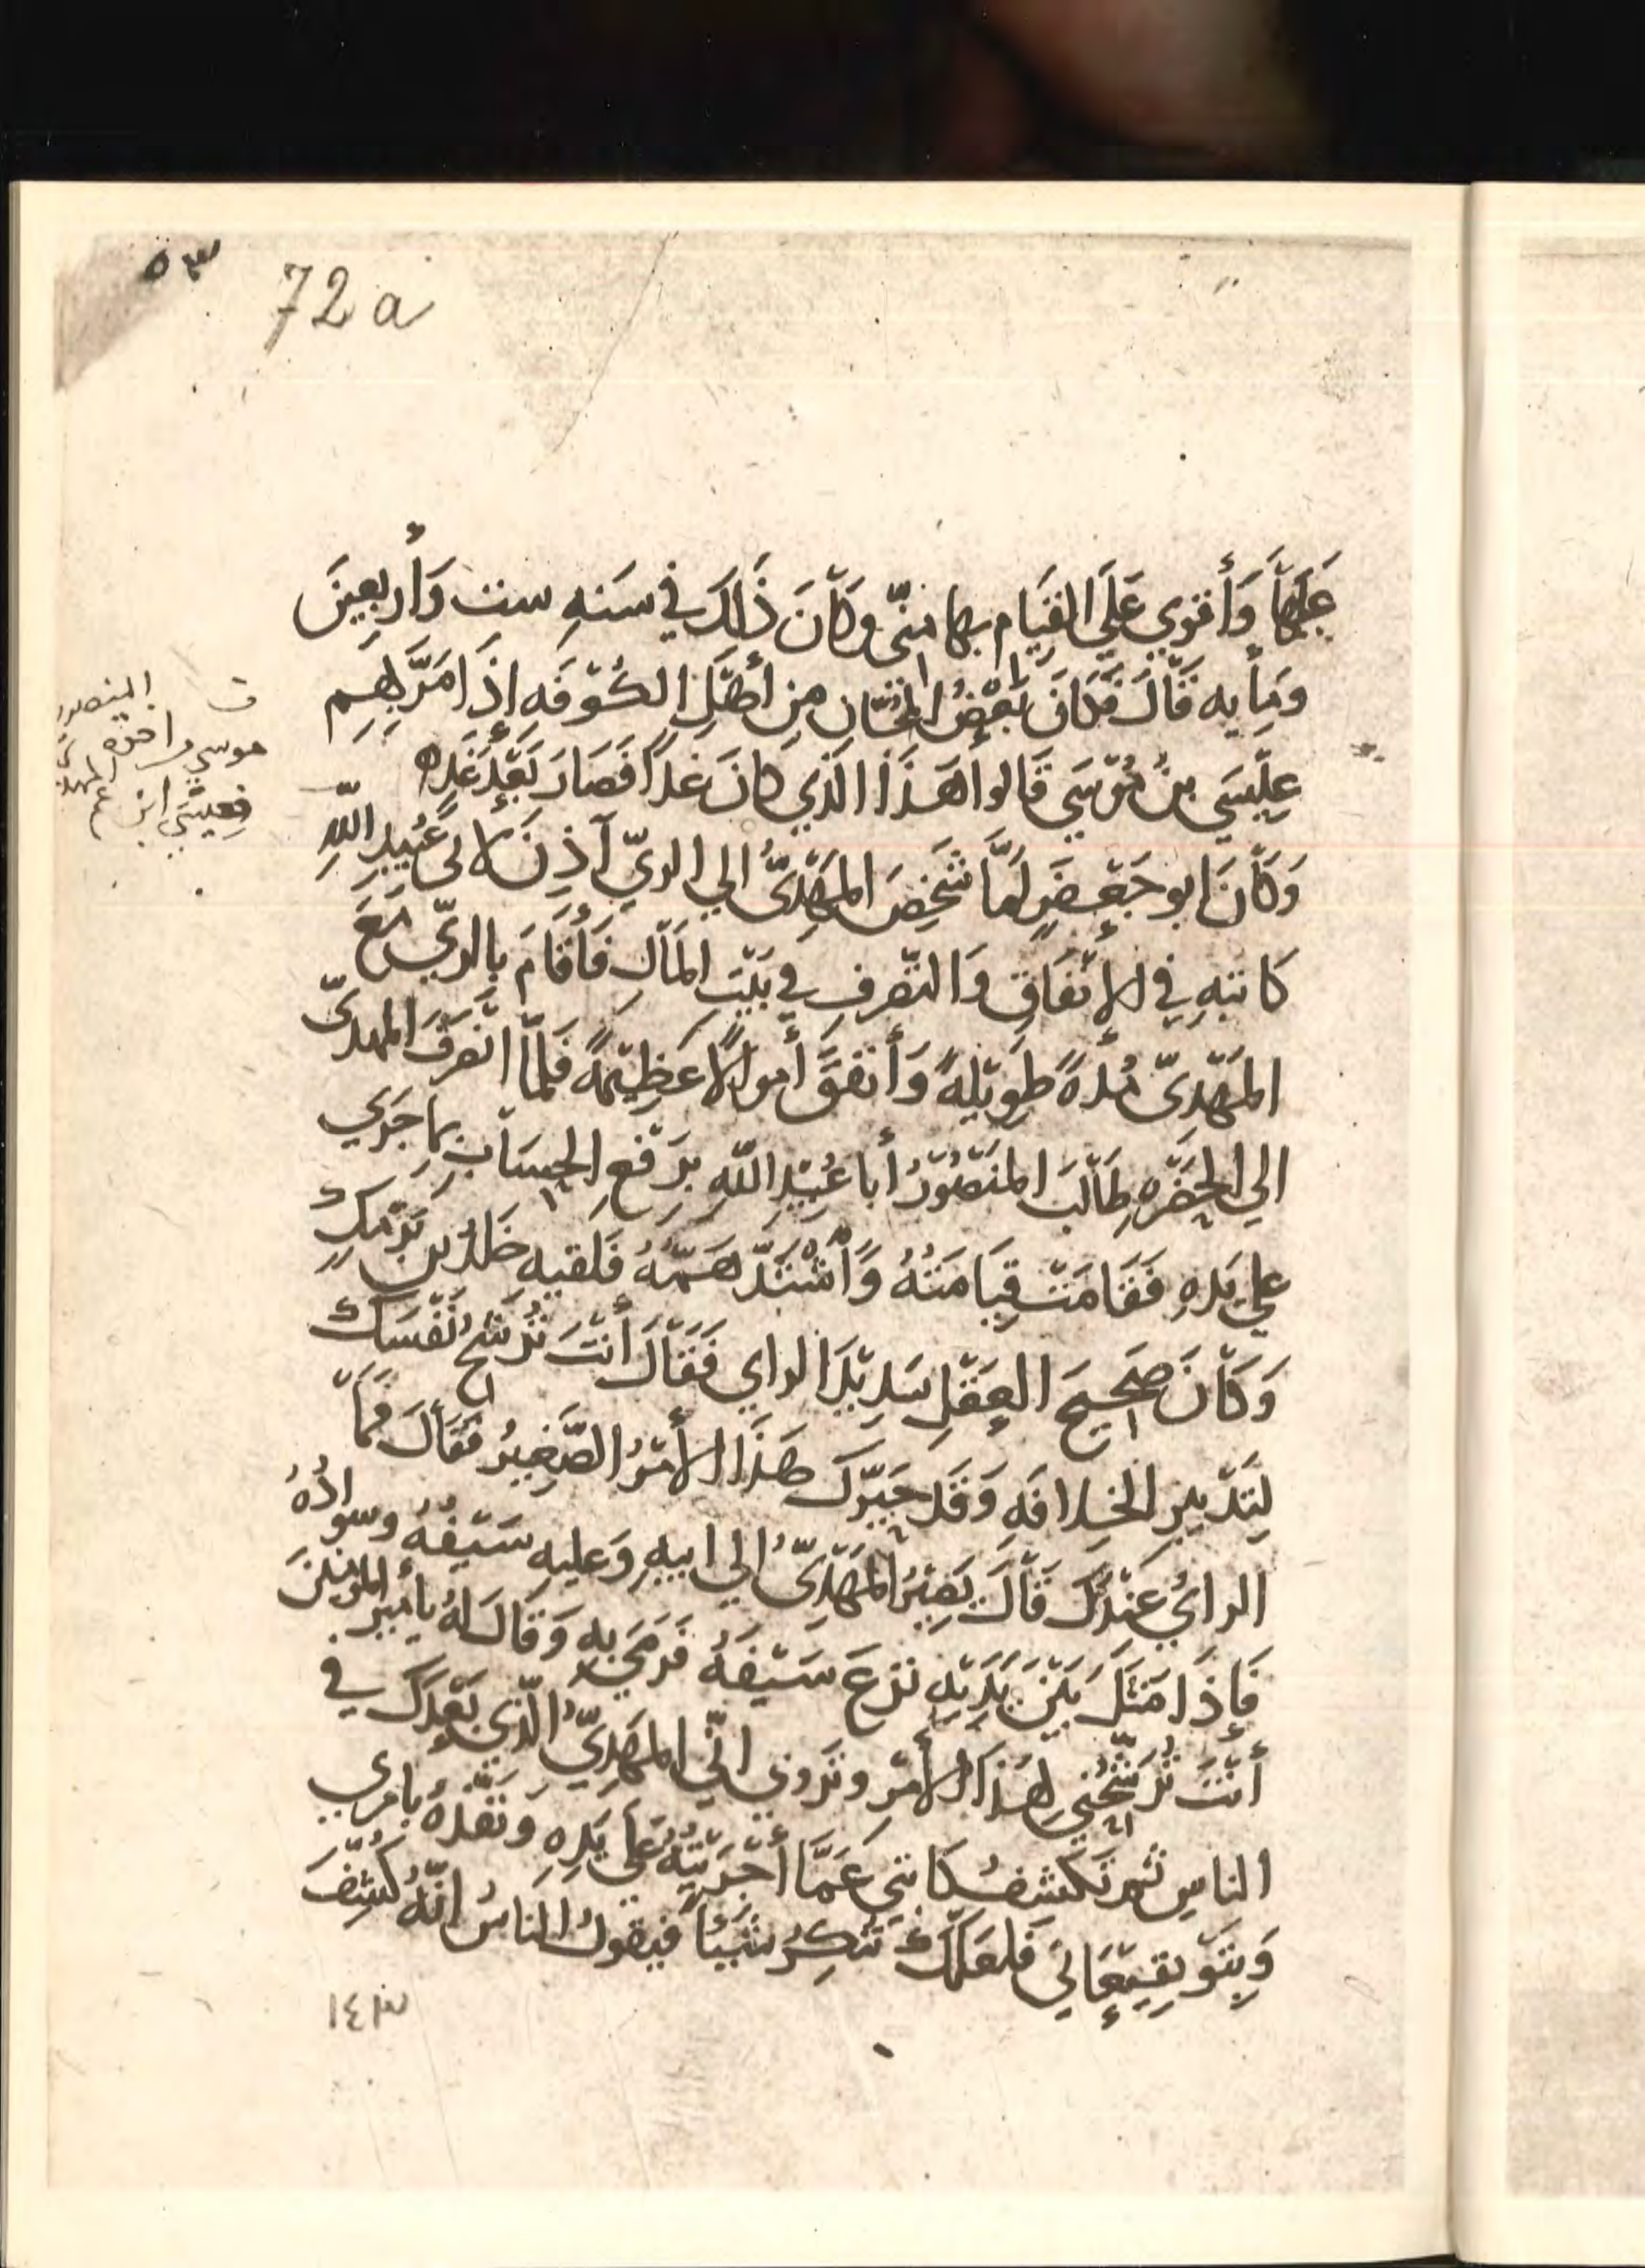 ٥٣
72 a
عَلَيهَا وَأقوي عَلَي القيَام بها منّي وَكَانَ ذَلكَ في سَنَهِ ست وَأربعينَ
ومأيه قَالَ فَكانَ بَعْضُ المُجّان مِن أهْلِ الكُوْفَهِ إذَا مَرَّ بِهِم
عِيْسَي بنُ مُوْسَي قَالوا هَذَا الَّذي كانَ غداً فَصَارَ بَعْدَ غَدٍ ه
وَكَانَ ابو جَعْفَرٍ لَمَّا شَخَصَ المَهْدِيُّ الي الريّ آذِنَ لابي عُبَيدِ اللّهِ
كاتبِهِ في الإنفَاقِ وَالتّصَرفِ في بَيْتِ المَالِ فَأقَامَ بالريّ مَعَ
المَهْدِيّ مُدهً طَوِيْلهً وَأنفقَ أموالاً عَظِيْمَهً فَلمّا انصَرَفَ المهديّ
الي الحَضْرَهِ طَالَبَ المَنْصُوْرُ أبا عُبَيْدِ اللّهِ برَفْعِ الحِسَابِ بِمَا جَرَي
علي يَدهِ فَقَامَتْ قِيَامَتُهُ وَأشْتَدَّ هَمّهُ فَلقيه خَلدُ بن بَرْمَكٍ
وَكَانَ صَحِيحَ العَقْلِ سَدِيْدَ الراي فَقَالَ أنْتَ تُرَشّحُ نَفْسَكَ
لِتَدْبيرِ الخِلافَهِ وَقَد حَيّرَكَ هَذَا الأمْرُ الصَّغِيرُ فَقَالَ فَمَا
الرائُ عِنْدَكَ قَالَ يَصِيْرُ المَهْدِيُّ الي ابيهِ وَعليهِ سَيْفُهُ وسوادُهُ
فَإِذَا مَثَلَ بَيْنَ يَدَيْهِ نزعَ سَيْفَهُ فَرَمَي بهِ وَقَالَ لهُ يأميرَ المؤمنينَ
أنْتَ تُرَشّحُني لهَذَا الأمْرِ وتَروي انّي المَهْدِيُّ الَّذي بَعْدَكَ في
الناسِ ثم تَكشفُ كاتبي عَمَّا أجْرَيْتُهُ عَلي يَدِهِ وَنَفَّذَهُ بامري
وَبِتَوْقِيْعَاتي فَلعَلّكَ تُنكِرُ شَيْئاً فيقولُ الناسُ انّهُ كُشِفَ
المنصور
موسي
فعيسَي ابن عم
١٤٣